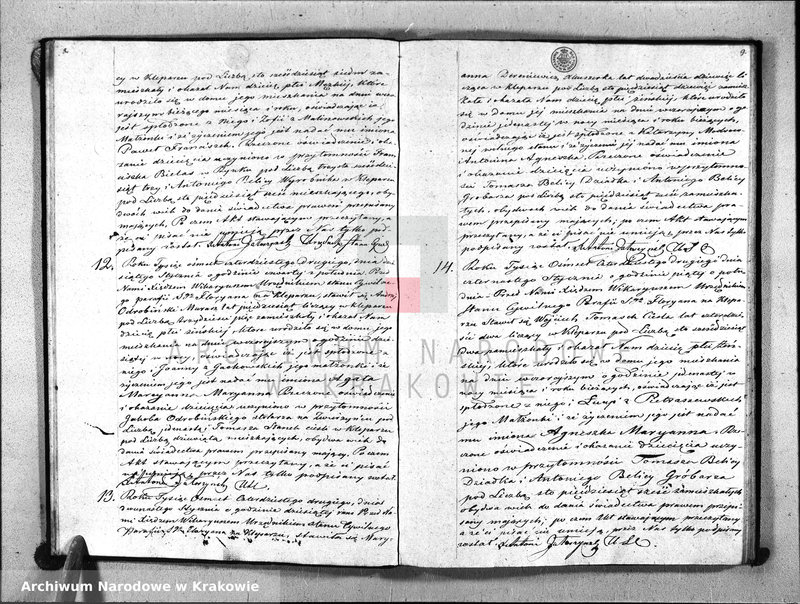 cy w Kleparzu pod Liczbą sto sześćdziesiąt siedm za-
mieszkały i okazał Nam dziecię płci Męzkiej, które
urodziło się w domu jego mieszkania na dniu wczo-
rajszym bieżącego miesiąca i roku, oświadczając iż
jest spłodzone z Niego i Zofii z Malinowskich jego
Małżonki i że życzeniem jego jest nadać mu imiona
Paweł Franciszek. Poczem oświadczenie i oka-
zanie dziecięcia uczyniono w przytomności Fran-
ciszka Bielas w Rynku pod Liczbą trzysta sześćdzie-
siąt trzy i Antoniego Belicy Wyrobnika w Kleparzu
pod Liczbą sto pięćdziesiąt sześć mieszkającego, oby-
dwóch wiek do dania świadectwa prawem przepisany
mających. Poczem Akt stawającym przeczytany, a
że ci pisać nie umieją przez Nas tylko pod-
pisany został.
12. Roku Tysiąc ośmset czterdziestego drugiego, dnia dzie-
siątego Stycznia o godzinie czwartej z południa. Przed
Nami Xiędzem Wikaryuszem Urzędnikiem stanu Cywilne-
go parafii S. Floryana na Kleparzu, stawił się Andrzej
Odrobiński Murarz lat pięćdziesiąt liczący w Kleparzu
pod Liczbą zamieszkały i okazał Nam
dziecię płci żeńskiej, które urodziło się w domu jego
mieszkania na dniu wczorajszym o godzinie
w nocy, oświadczając iż jest spłodzone z
niego i Joanny z jego małżonki i że
życzeniem jego jest nadać mu imiona Agata
Maryanna Maryanna Poczem oświadczenie
i okazanie dziecięcia uczyniono w przytomności
Jakóba Odrobińskiego stolarza na Zwierzyńcu pod
Liczbą jedenastą i Tomasza cieśli w Kleparzu
pod Liczbą dziewiątą mieszkających, obydwa wiek do
dania świadectwa prawem przepisany mający. Poczem
Akt stawającym przeczytany, a że ci pisać
nie umieją przez Nas tylko podpisany został.
13. Roku Tysiąc Ośmset Czterdziestego drugiego, dnia
Stycznia o godzinie dziesiątej rano Przed Na-
mi Xiędzem Wikaryuszem Urzędnikiem stanu Cywilnego
Parafii S. Floryana na Kleparzu, stawiła się Mary-
9
anna Dereniewicz Akuszerka lat dwadzieścia dziewięć li-
cząca w Kleparzu pod Liczbą sto pięćdziesiąt dziewięć zamiesz-
kała i okazała Nam dziecię płci żeńskiej, które urodziło
się w domu jej mieszkania na dniu wczorajszym o go-
dzinie jedenastej z nocy miesiąca i roku bieżących,
oświadczając iż jest spłodzone z Katarzyny
wolnego stanu i że życzeniem jej nadać mu imiona
Antonina Agnieszka. Poczem oświadczenie
i okazanie dziecięcia uczyniono w przytomno-
ści Tomasza Belicy Dziadka i Antoniego Belicy
Grobarza pod Liczbą sto pięćdziesiąt sześć zamieszka-
łych, obydwóch wiek do dania świadectwa pra-
wem przepisany mających, po czem Akt stawającym
przeczytany, a że ci pisać nie umieją przez Nas tylko
podpisany został.
14. Roku Tysiąc Ośmset Czterdziestego drugiego dnia
czternastego Stycznia o godzinie piątej z połu-
dnia. Przed Nami Xiędzem Wikaryuszem Urzędnikiem
Stanu Cywilnego Parafii S. Floryana na Klepa-
rzu Stawił się Wojciech Tomasik Cieśla lat czterdzie-
ści dwa liczący w Kleparzu pod Liczbą sto sześćdziesiąt
dwa zamieszkały i okazał Nam dziecię płci żeń-
skiej, które urodziło się w domu jego mieszkania
na dniu wczorajszym o godzinie jedenastej w
nocy miesiąca i roku bieżących, oświadczając iż jest
spłodzone z niego i Łucyi z Pietraszewskich
jego Małżonki i że życzeniem jego jest nadać
mu imiona Agnieszka Maryanna. Po-
czem oświadczenie i okazanie dziecięcia uczy-
niono w przytomności Tomasza Belicy
Dziadka i Antoniego Belicy Gróbarza
pod Liczbą sto pięćdziesiąt sześć zamieszkałych
obydwa wiek do dania świadectwa prawem przepi-
sany mających, po czem Akt stawającym przeczytany
a że ci pisać nie umieją, przez Nas tylko podpisany
został.
ARCHIWUM NARODOWE
W KRAKOWIE
Archiwum Narodowe w Krakowie